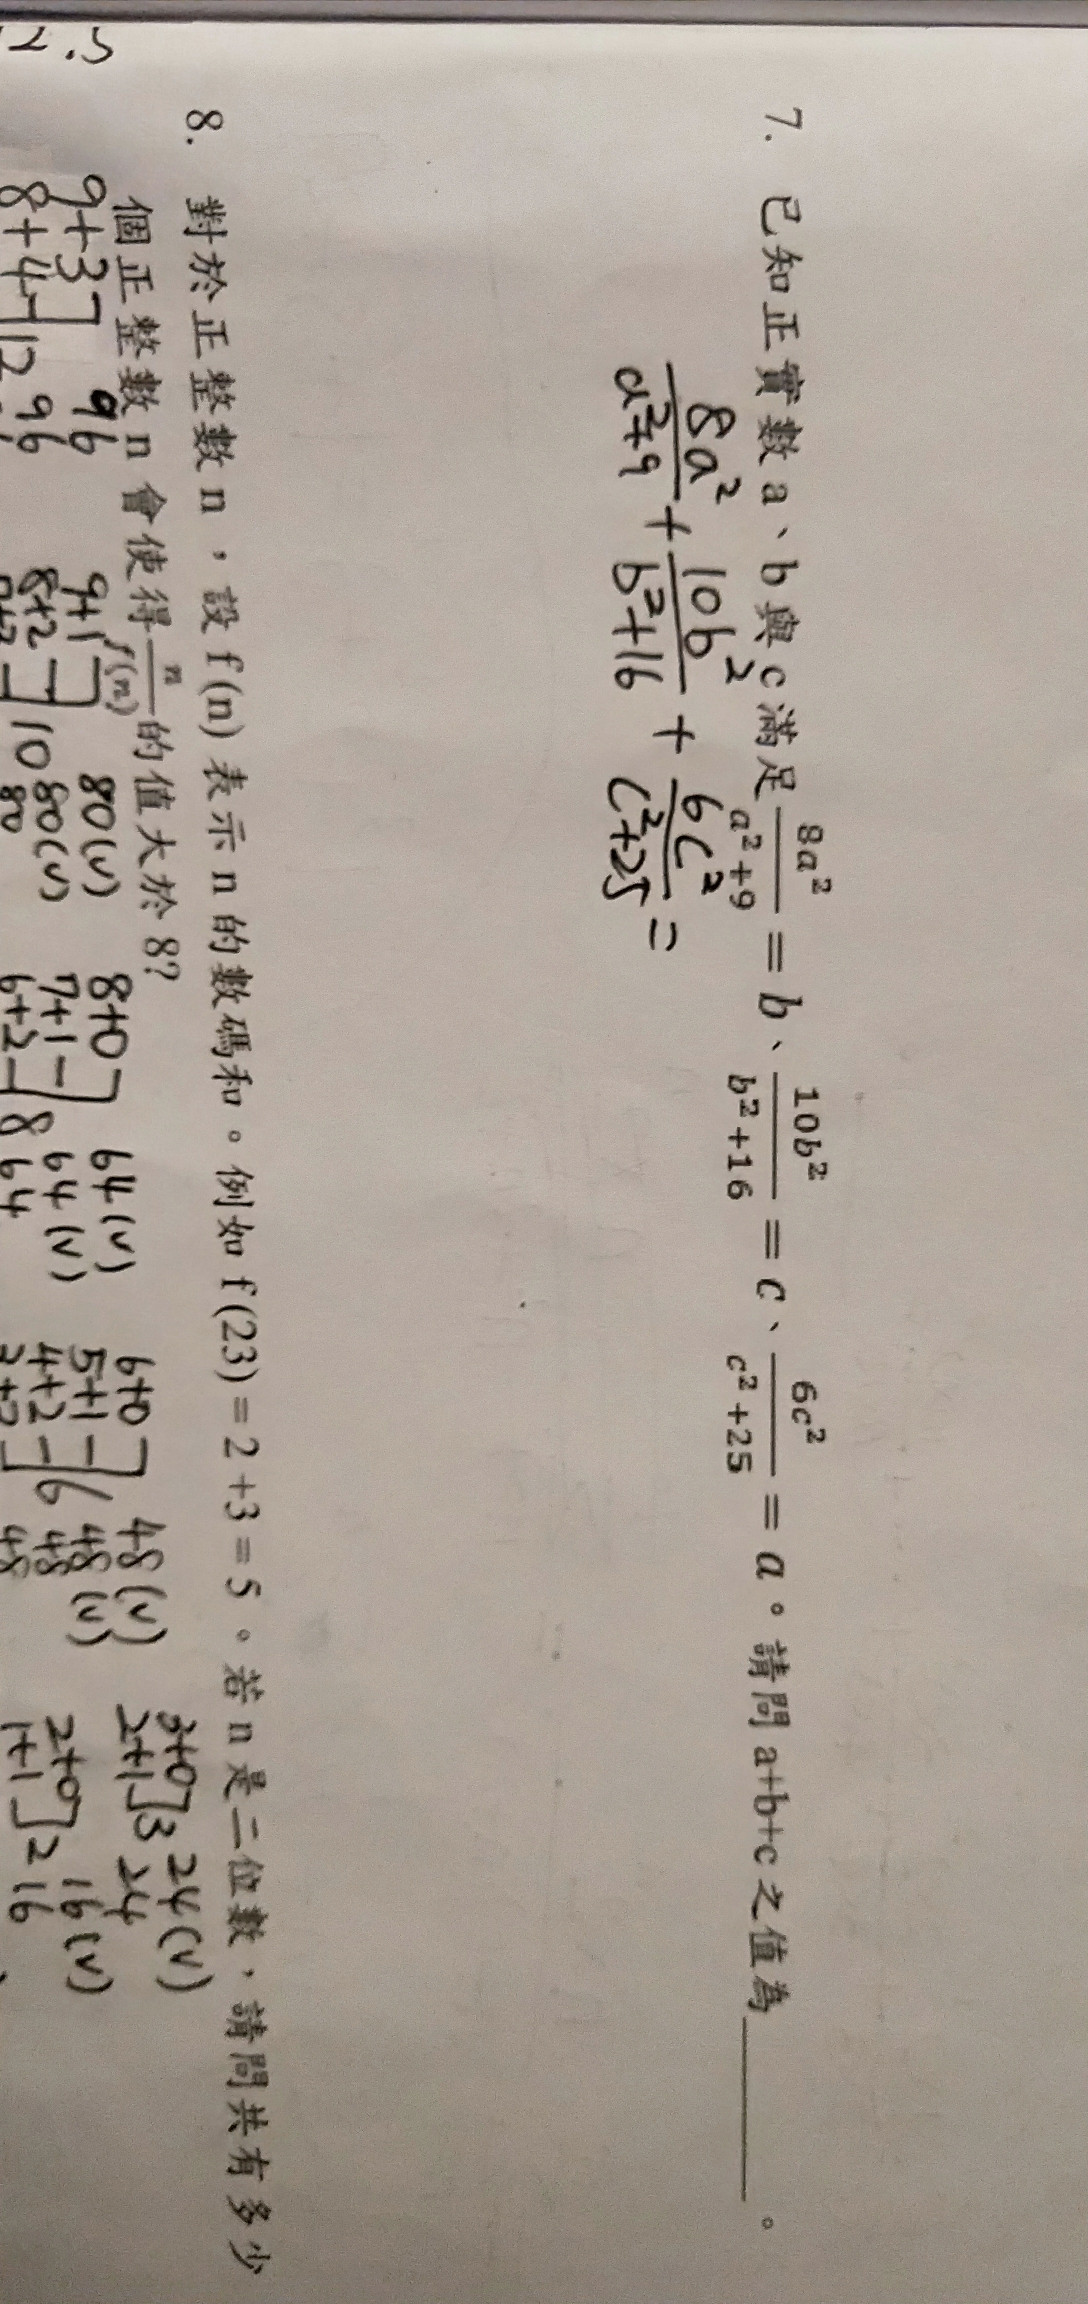 7. 已知正實數 a、b 與 c 滿足 8a²/(a²+9) = b、10b²/(b²+16) = c、6c²/(c²+25) = a。請問 a+b+c 之值為______。
8a²/(a²+9) + 10b²/(b²+16) + 6c²/(c²+25) =
8. 對於正整數 n，設 f(n) 表示 n 的數碼和。例如 f(23) = 2 +3 = 5。若 n 是二位數，請問共有多少
個正整數 n 會使得 n/f(n) 的值大於 8?
3+0 ] 3 24 (v)
2+1 24
6+0 ] 6 48 (v)
5+1 48 (v)
4+2 48
48
8+0 ] 8 64 (v)
7+1 64 (v)
6+2 64
9+1 ] 10 80 (v)
8+2 80 (v)
80
9+3 ] 12 96
8+4 96
2+0 ] 2 16 (v)
1+1 16